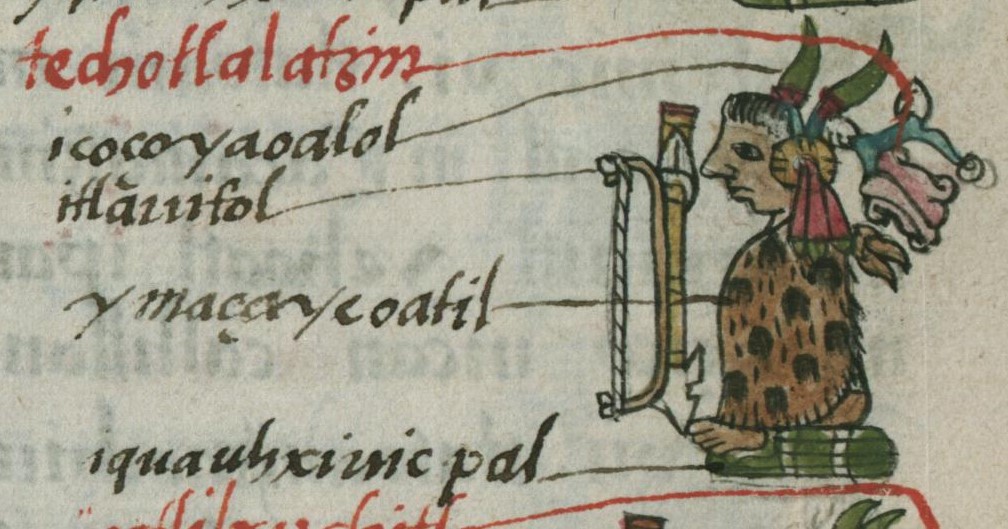 techotlalatzin
icoçoyaoalol
itlāuitol
y maçayeoatil
iquauhxiuic pal